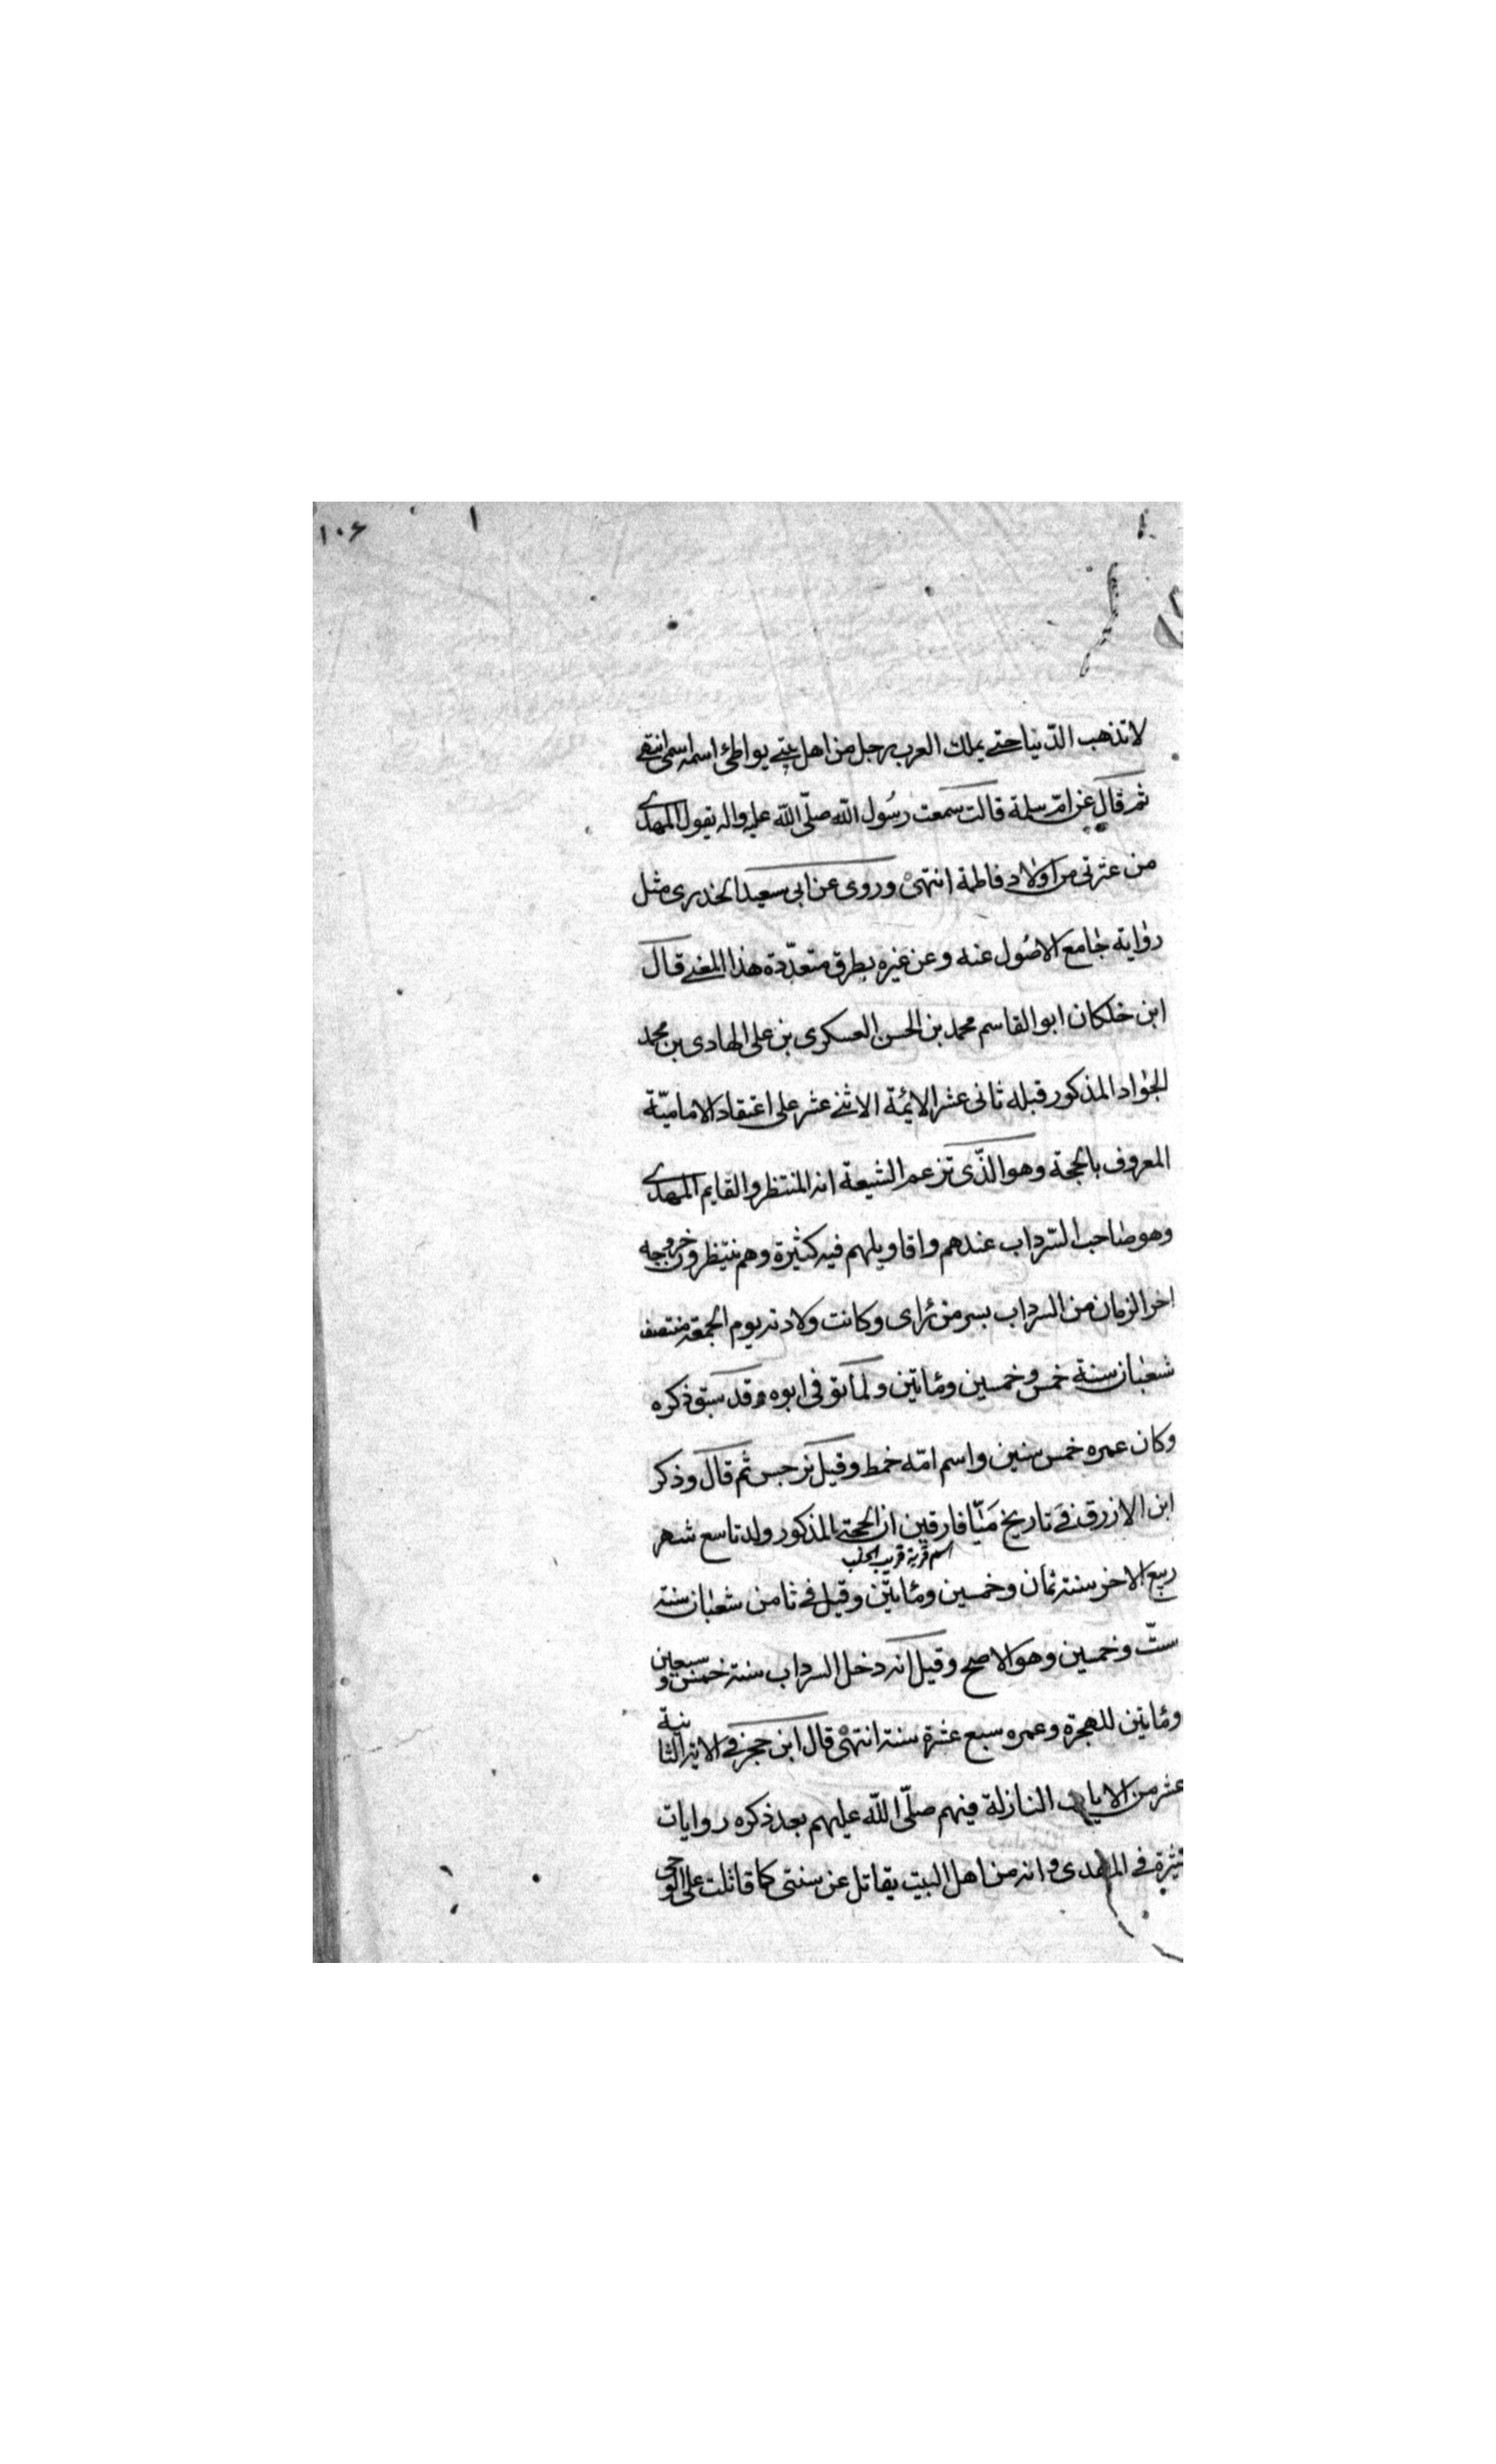 ١٠۶
لا تذهب الدّنيا حتے يملك العرب رجل من اهل بيتے يواطئ اسمه اسمى انتهى
ثم قال عن امّ سلمة قالت سمعت رسُول الله صلّى الله عليه واله يقول المهدى
من عترتى من اولاد فاطمة انتهىٰ وروى عن ابى سعيد الخدرى مثل
رواية جامع الاصُول عنه وعن غيره بطرق متعدّدة هذا المعنے قال
ابن خلكان ابو القاسم محمد بن الحسن العسكرى بن على الهادى بن محمد
الجواد المذكور قبله ثانى عشر الائمّة الاثنے عشر على اعتقاد الاماميّة
المعروف بالحجة وهو الذّى تزعم الشيعة انه المنتظر والقايم المهدى
وهو صاحب السّرداب عندهم واقاويلهم فيه كثيرة وهم ينتظرون خروجه
اخر الزمان من السرداب بسر من رأى وكانت ولادته يوم الجمعة منتصف
شعبان سنة خمس وخمسين ومأتين ولما توفى ابوه وقد سبق ذكره
وكان عمره خمس سنين واسم امّه خمط وقيل نرجس ثم قال وذكر
ابن الازرق فے تاريخ ميّافارقين ان الحجة المذكور ولد تاسع شهر
اسم قرية قريب الحلب
ربيع الاخر سنة ثمان وخمسين ومأتين وقيل فے ثامن شعبان سنة
ستّ وخمسين وهو الاصح وقيل انه دخل السرداب سنة خمس وسبعين
ومأتين للهجرة وعمره سبع عشرة سنة انتهىٰ قال ابن حجر فے الاية الثانية
عشر من الايات النازلة فيهم صلّى الله عليهم بعد ذكره روايات
كثيرة فے المهدى وانه من اهل البيت يقاتل عن سنتى كما قاتلت على الوحى